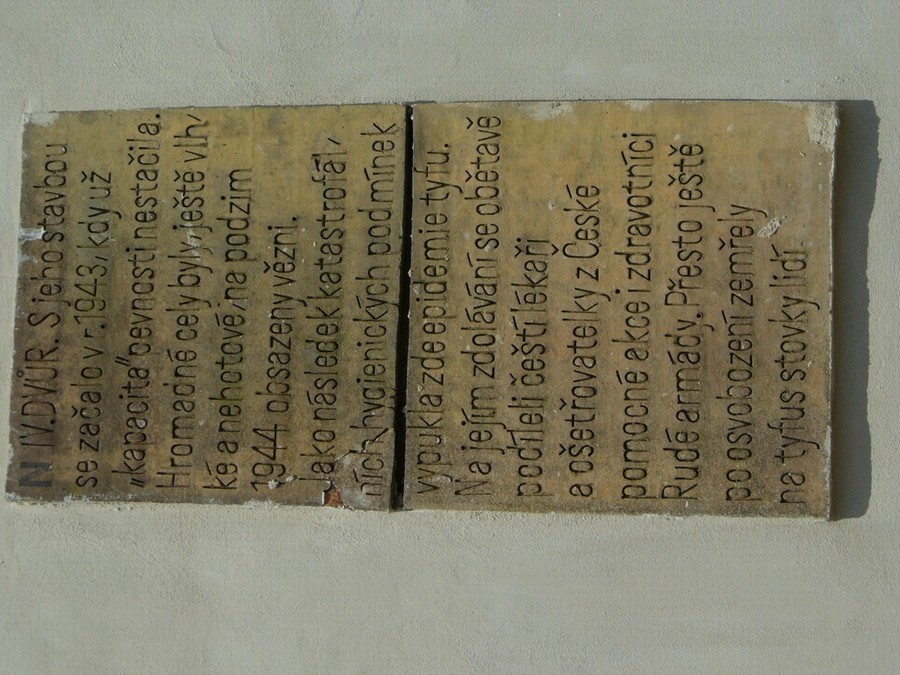 N IV. DVŮR. S jeho stavbou
se začalo v r. 1943, kdy už
„kapacita“ pevnosti nestačila.
Hromadné cely byly, ještě vlh,
ké a nehotové, na podzim
1944 obsazeny vězni.
Jako následek katastrofál,
ních hygienických podmínek
vypukla zde epidemie tyfu.
Na jejím zdolávání se obětavě
podíleli čeští lékaři
a ošetřovatelky z České
pomocné akce i zdravotníci
Rudé armády. Přesto ještě
po osvobození zemřely
na tyfus stovky lidí.